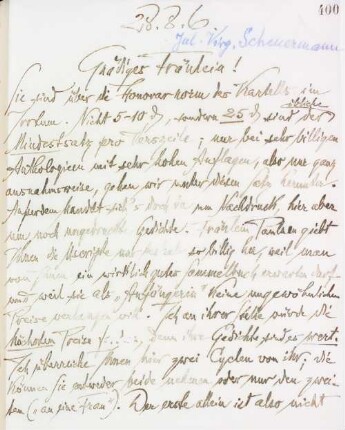 400
28. 8. 6
Jul. Virg. Scheuermann
Gnädiges Fräulein!
Sie sind über die Honorarnorm des Kartells im
Irrtum. Nicht 5-10 ₰, sondern 25 ₰ sind der übliche
Mindestsatz pro Verszeile; nur bei sehr billigen
Anthologieen mit sehr hohen Auflagen, also nur ganz
ausnahmsweise, gehen wir unter diesen Satz herunter.
Ausserdem handelt sich's doch da um Nachdruck, hier aber
um noch ungedruckte Gedichte. Fräulein
Ihnen die Manuskripte nur so billig her, weil man
von Ihnen ein wirklich gutes Sammelbuch erwarten darf
und weil sie als "Anfängerin" keine ungewöhnlichen
Preise verlangen will. Ich an ihrer Stelle würde die
höchsten Preise denn ihre Gedichte sind es wert.
Ich überreiche Ihnen hier zwei Cyclen von ihr; die
können Sie entweder beide nehmen oder nur den zwei-
ten ("an eine Frau"). Der erste allein ist also nicht